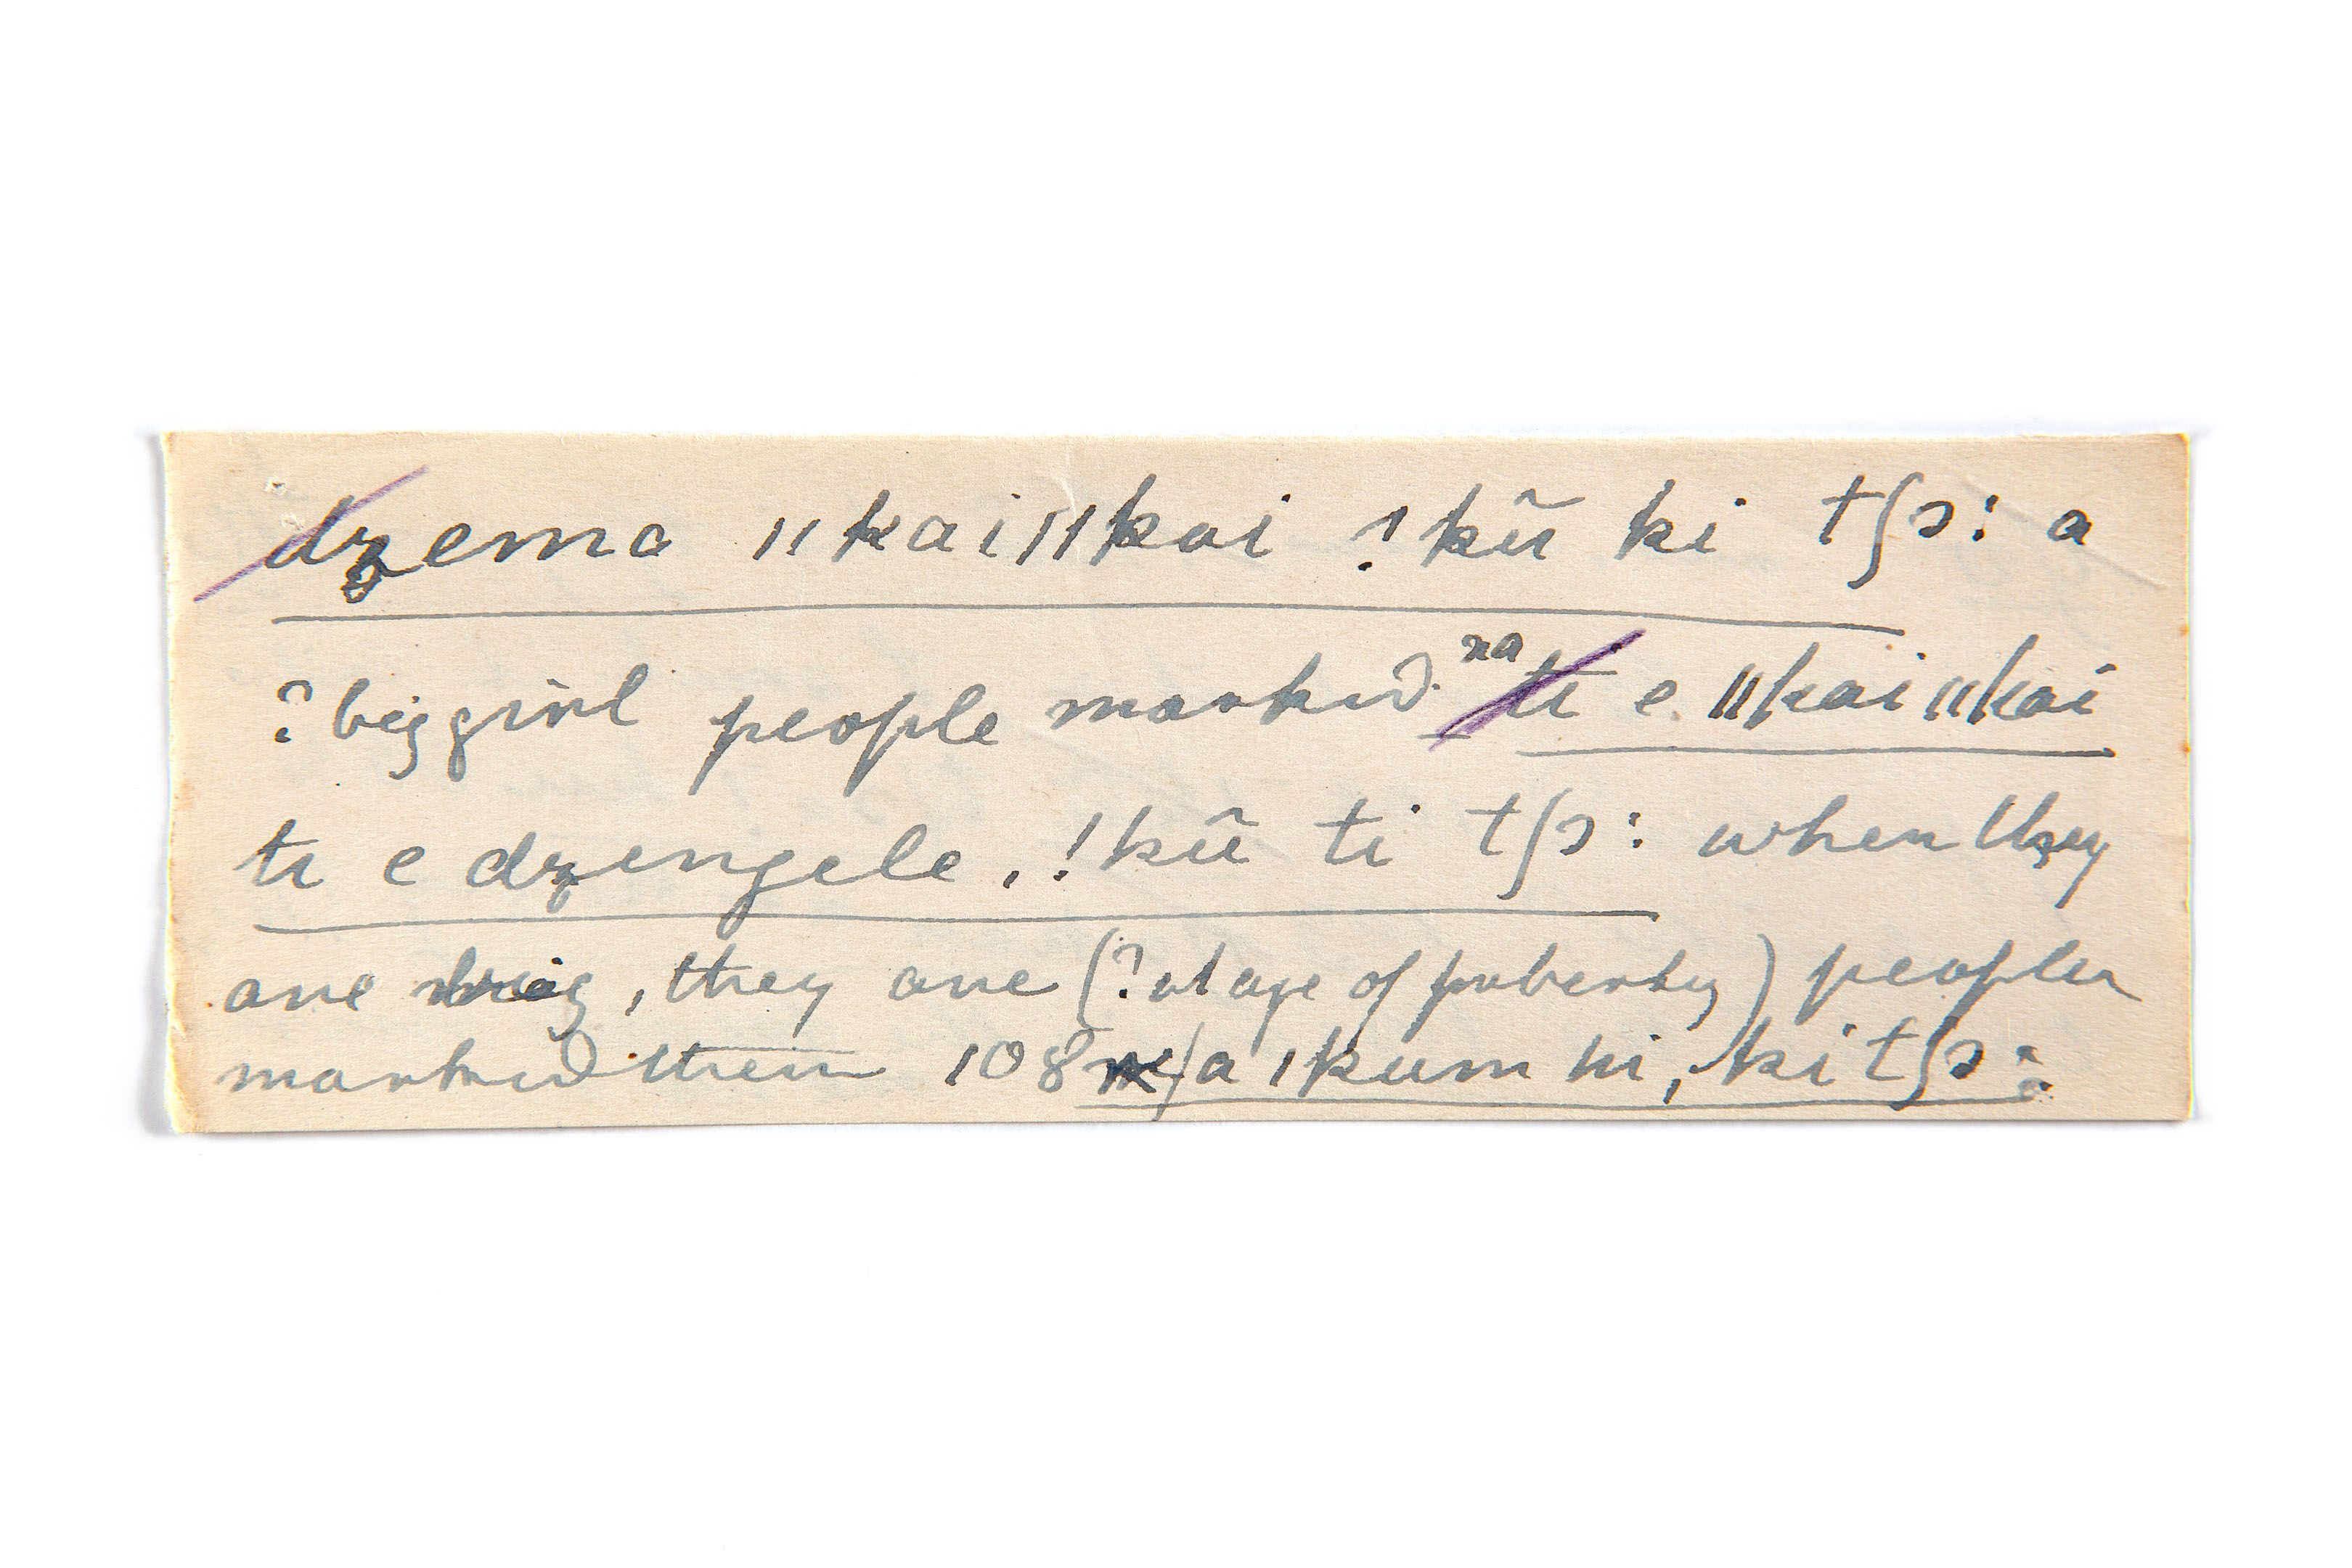 dʒema ǁkaiǁkai !kũ ki tʃɔ: a
? big girl people marked. na ti e ǁkaiǁkai
ti e dʒengele, !kũ ti tʃɔ: when they
are big, they are (? at age of puberty) people
marked them 108 /a /kum hi, ki tʃɔ: